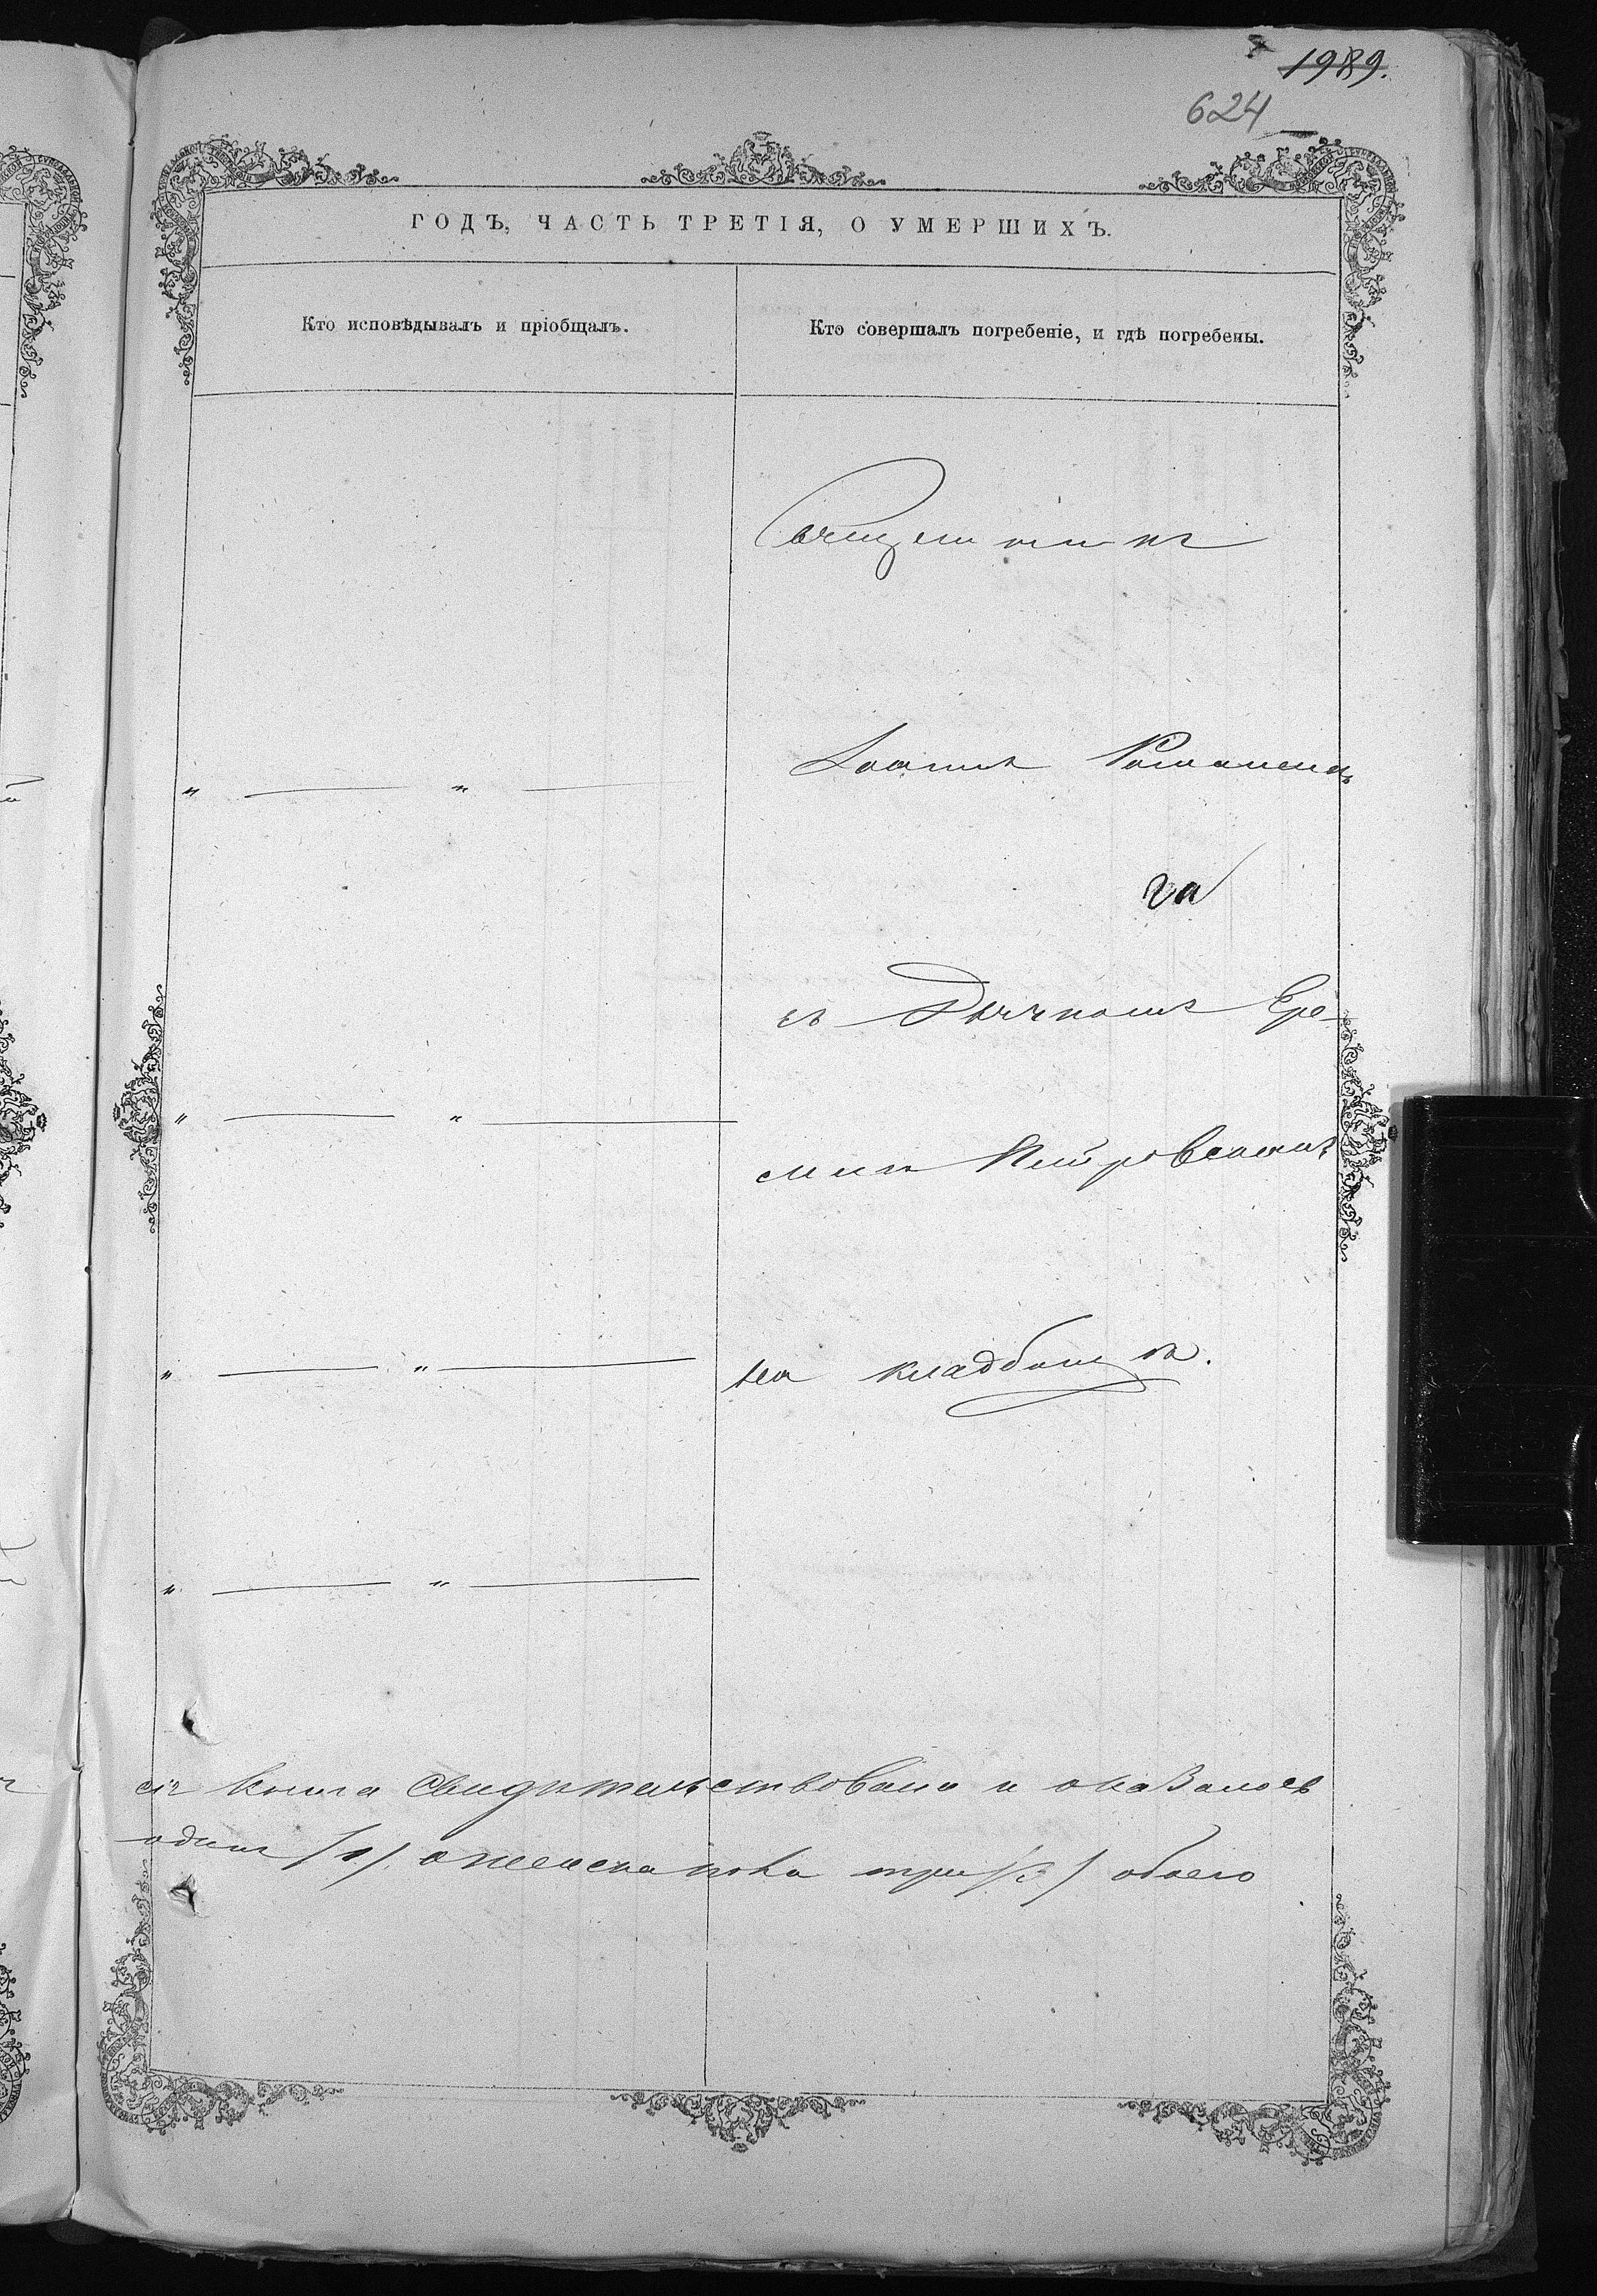 1989.
624
ГОДЪ, ЧАСТЬ ТРЕТІЯ, О УМЕРШИХЪ.
Кто исповѣдывалъ и пріобщалъ.
Кто совершалъ погребеніе, и гдѣ погребены.
Священникъ
Іоаннъ Романенъ
съ Дьячкомъ Ере-
" — " —
Петровскимъ
" — " —
на кладбищѣ.
" — " —
" — " —
сія Книга Свидѣтельствована и оказалось
одинъ /1/ а женска пола три /3/ обоего